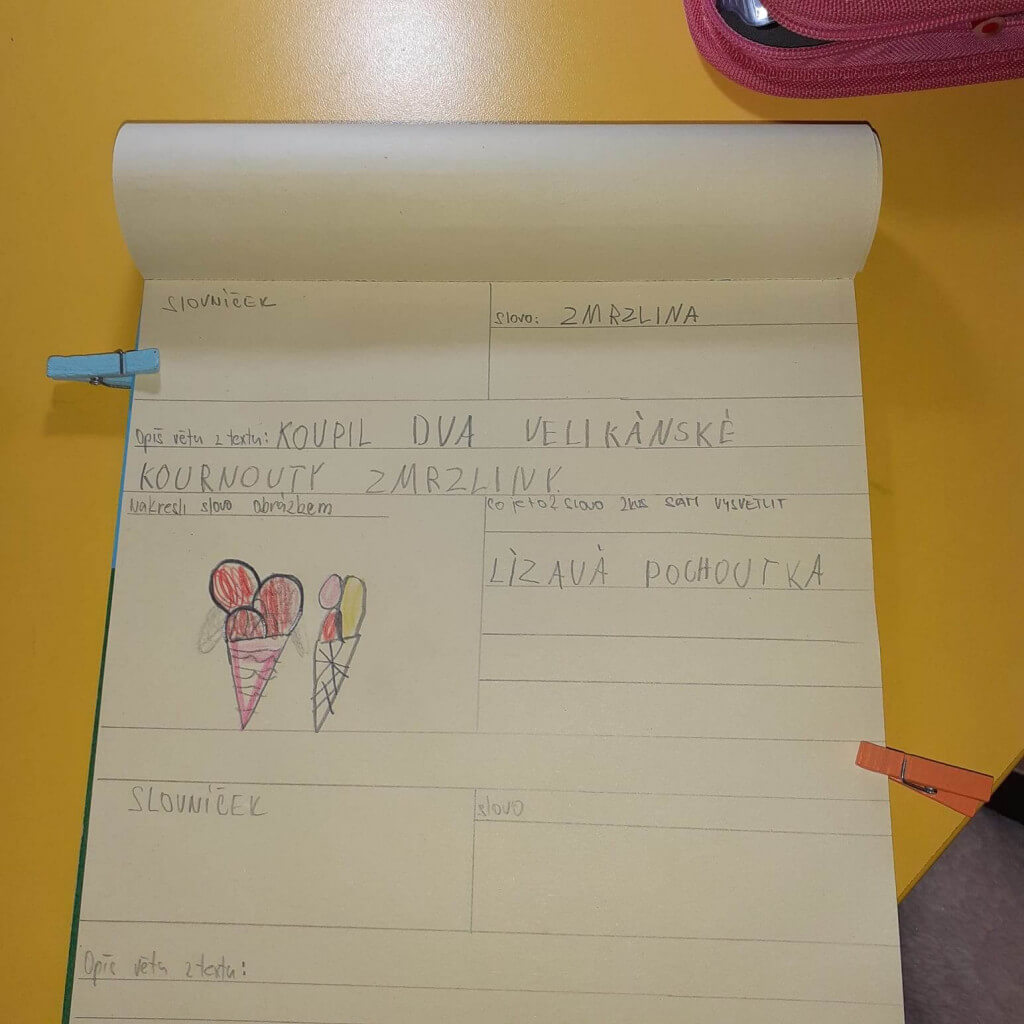 SLOVNÍČEK
slovo: ZMRZLINA
Opiš větu z textu: KOUPIL DVA VELIKÁNSKÉ
KOURNOUTY ZMRZLINY.
Nakresli slovo obrázkem
CO JE TO ZA SLOVO SÁM VYSVĚTLIT
LÍZAVÁ POCHOUTKA
SLOVNÍČEK
slovo
Opiš větu z textu: